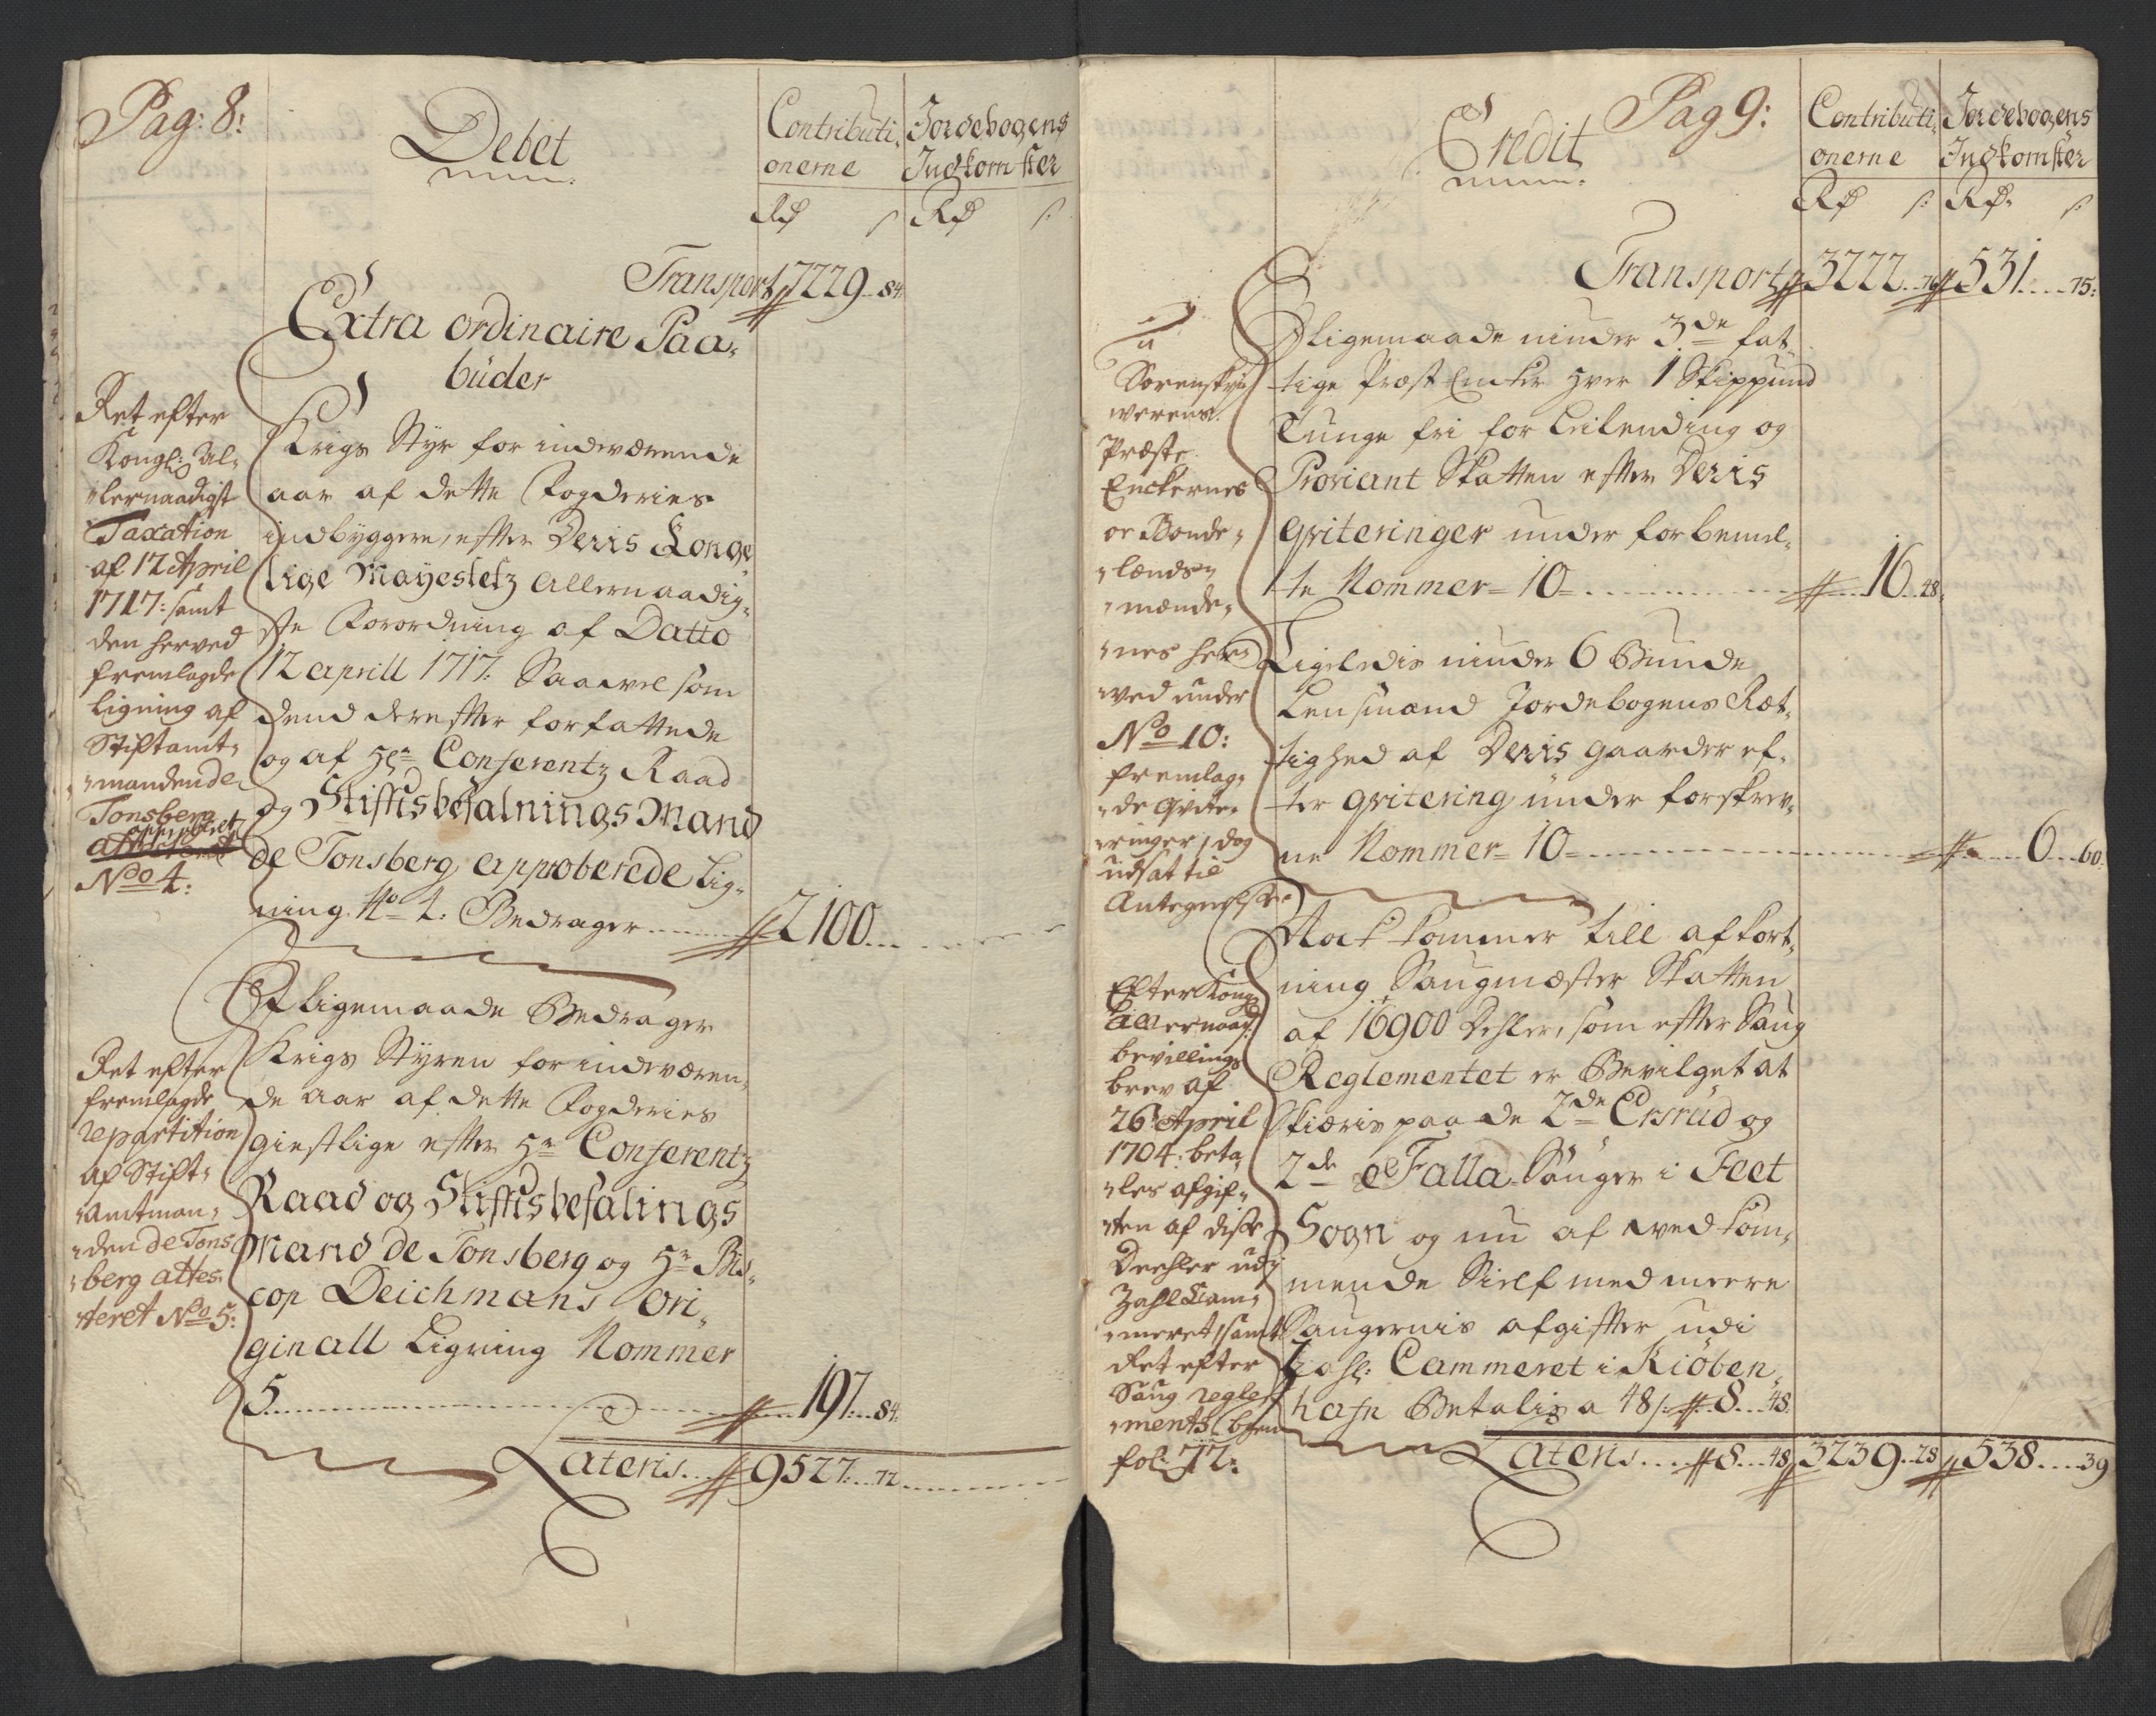 Pag: 8:
Debet
Contributi,
onerne
Jordebogens
Indkomster
Rd s Rd s:
Transport 7229..84:
Extra ordinaire Paa,
büder
Ret efter
Kongl: Al,
lernaadigst
Taxation
af 12 April
1717: samt
den herved
fremlagde
Ligning af
Stiftamt,
manden de
Tonsberg
approberet
No 4:
Krigs Styr for indeværende
aar af dette Fogderies
indbyggere, efter Deris Konge
lige Mayestetz Allernaadig,
ste Forordning af Datto
12 aprill 1717: Saavel som
dend derefter forfattede
og af Hr Conferentz Raad
og StiftsbefalningsMand
de Tonsberg approberede Lig,
ning No 4: Bedrager 2100
Ret efter
fremlagde
repartition
af Stift,
Amtman,
den de Tons
berg attes,
teret No 5:
Ligemaade Bedrager
Krigs Styren for indeværen,
de aar af dette Fogderies
giestlige efter Hr Conferentz
Raad og Stiftsbefalings
Mand de Tonsberg og Hr Bis,
cop Deichmans Ori,
ginall Ligning Nommer
5 197..84:
Lateris 9527..72
Pag 9:
Credit
Contributi,
onerne
Jordebogens
Indkomster
Rd s: Rd s:
Transport 3222 531....75:
Sorenskri
werens
Præste
Enckernes
oc Bonde,
lænds
mænde,
nes her
ved under
No 10:
fremlag,
de Qvite,
ringer, dog
udsat til
Antegnelse
Ligemaade niuder 3de fat,
tige Præst Encker hver 1 Skippund
Tunge fri for Leilending og
Proviant Skatten efter Deris
Qviteringer under forbemel,
te Nommer 10 16..48:
Ligeledis niuder 6 Bunde
Lensmænd Jordebogens Ræt,
tighed af Deris gaarder ef,
ter qvitering under forskrev,
ne Nommer 10 6...60:
Efter Kongl
allernaad:
bevillings
brev af
26 April
1704: beta,
les afgif,
ten af disse
Deehler udj
Zahl Kam,
meret, samt
Ret efter
Saug regle
ments
fol: 72:
Nock kommer till afkort,
ning Saugmæster Skatten
af 16900 Dehler, som efter Saug
Reglementet er Bevilget at
skiæris paa de 2de Ersrud og
2de Falla Sauger i Feet
Sogn og nu af vedkom,
mende Sielf med meere
Saugernis afgifter udi
Zahl: Cammeret i Kiöben,
hafn Betalis a 48 s: 8...48:
Lateris....8...48 3239..28 538....39